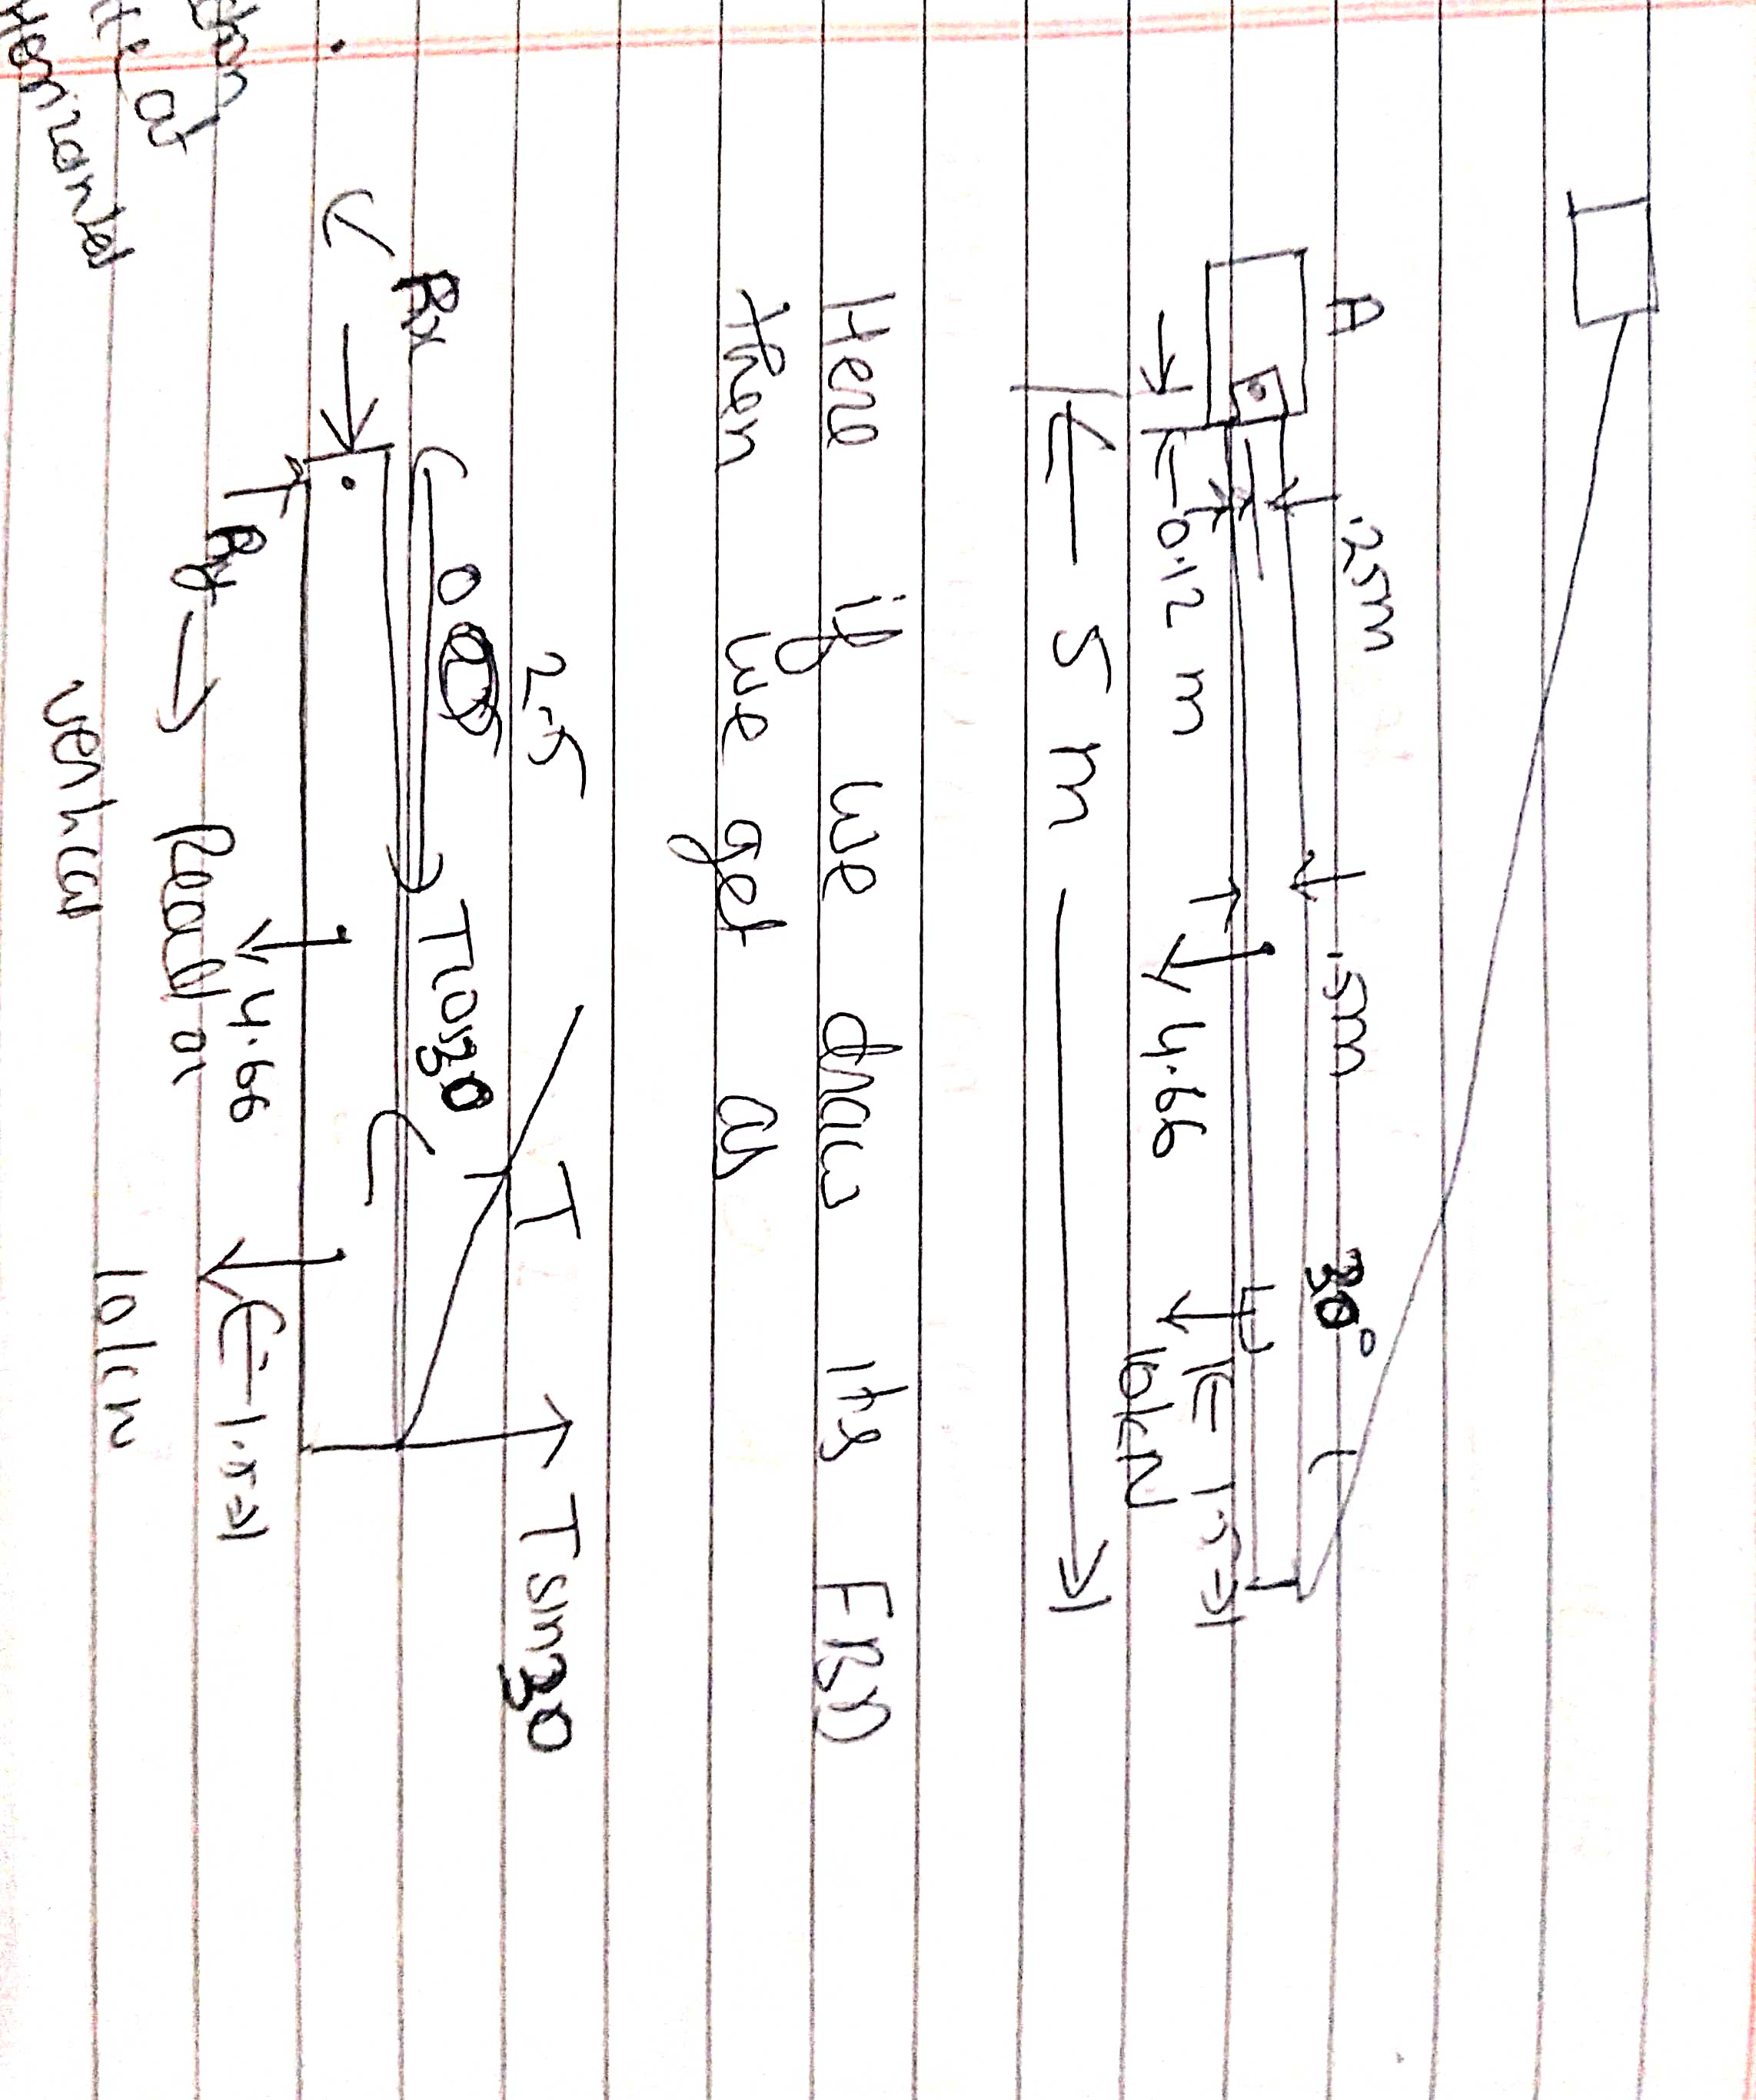 A
.25m
.5m
30°
0.12 m
4.66
1.5
10kN
5 m
Here if we draw its FBD
then we get as
2.5
T
T sin30
Rx
0
Tcos30
Ry
4.66
1.5
10kN
Reaction
vertical
tion
at
Horizontal